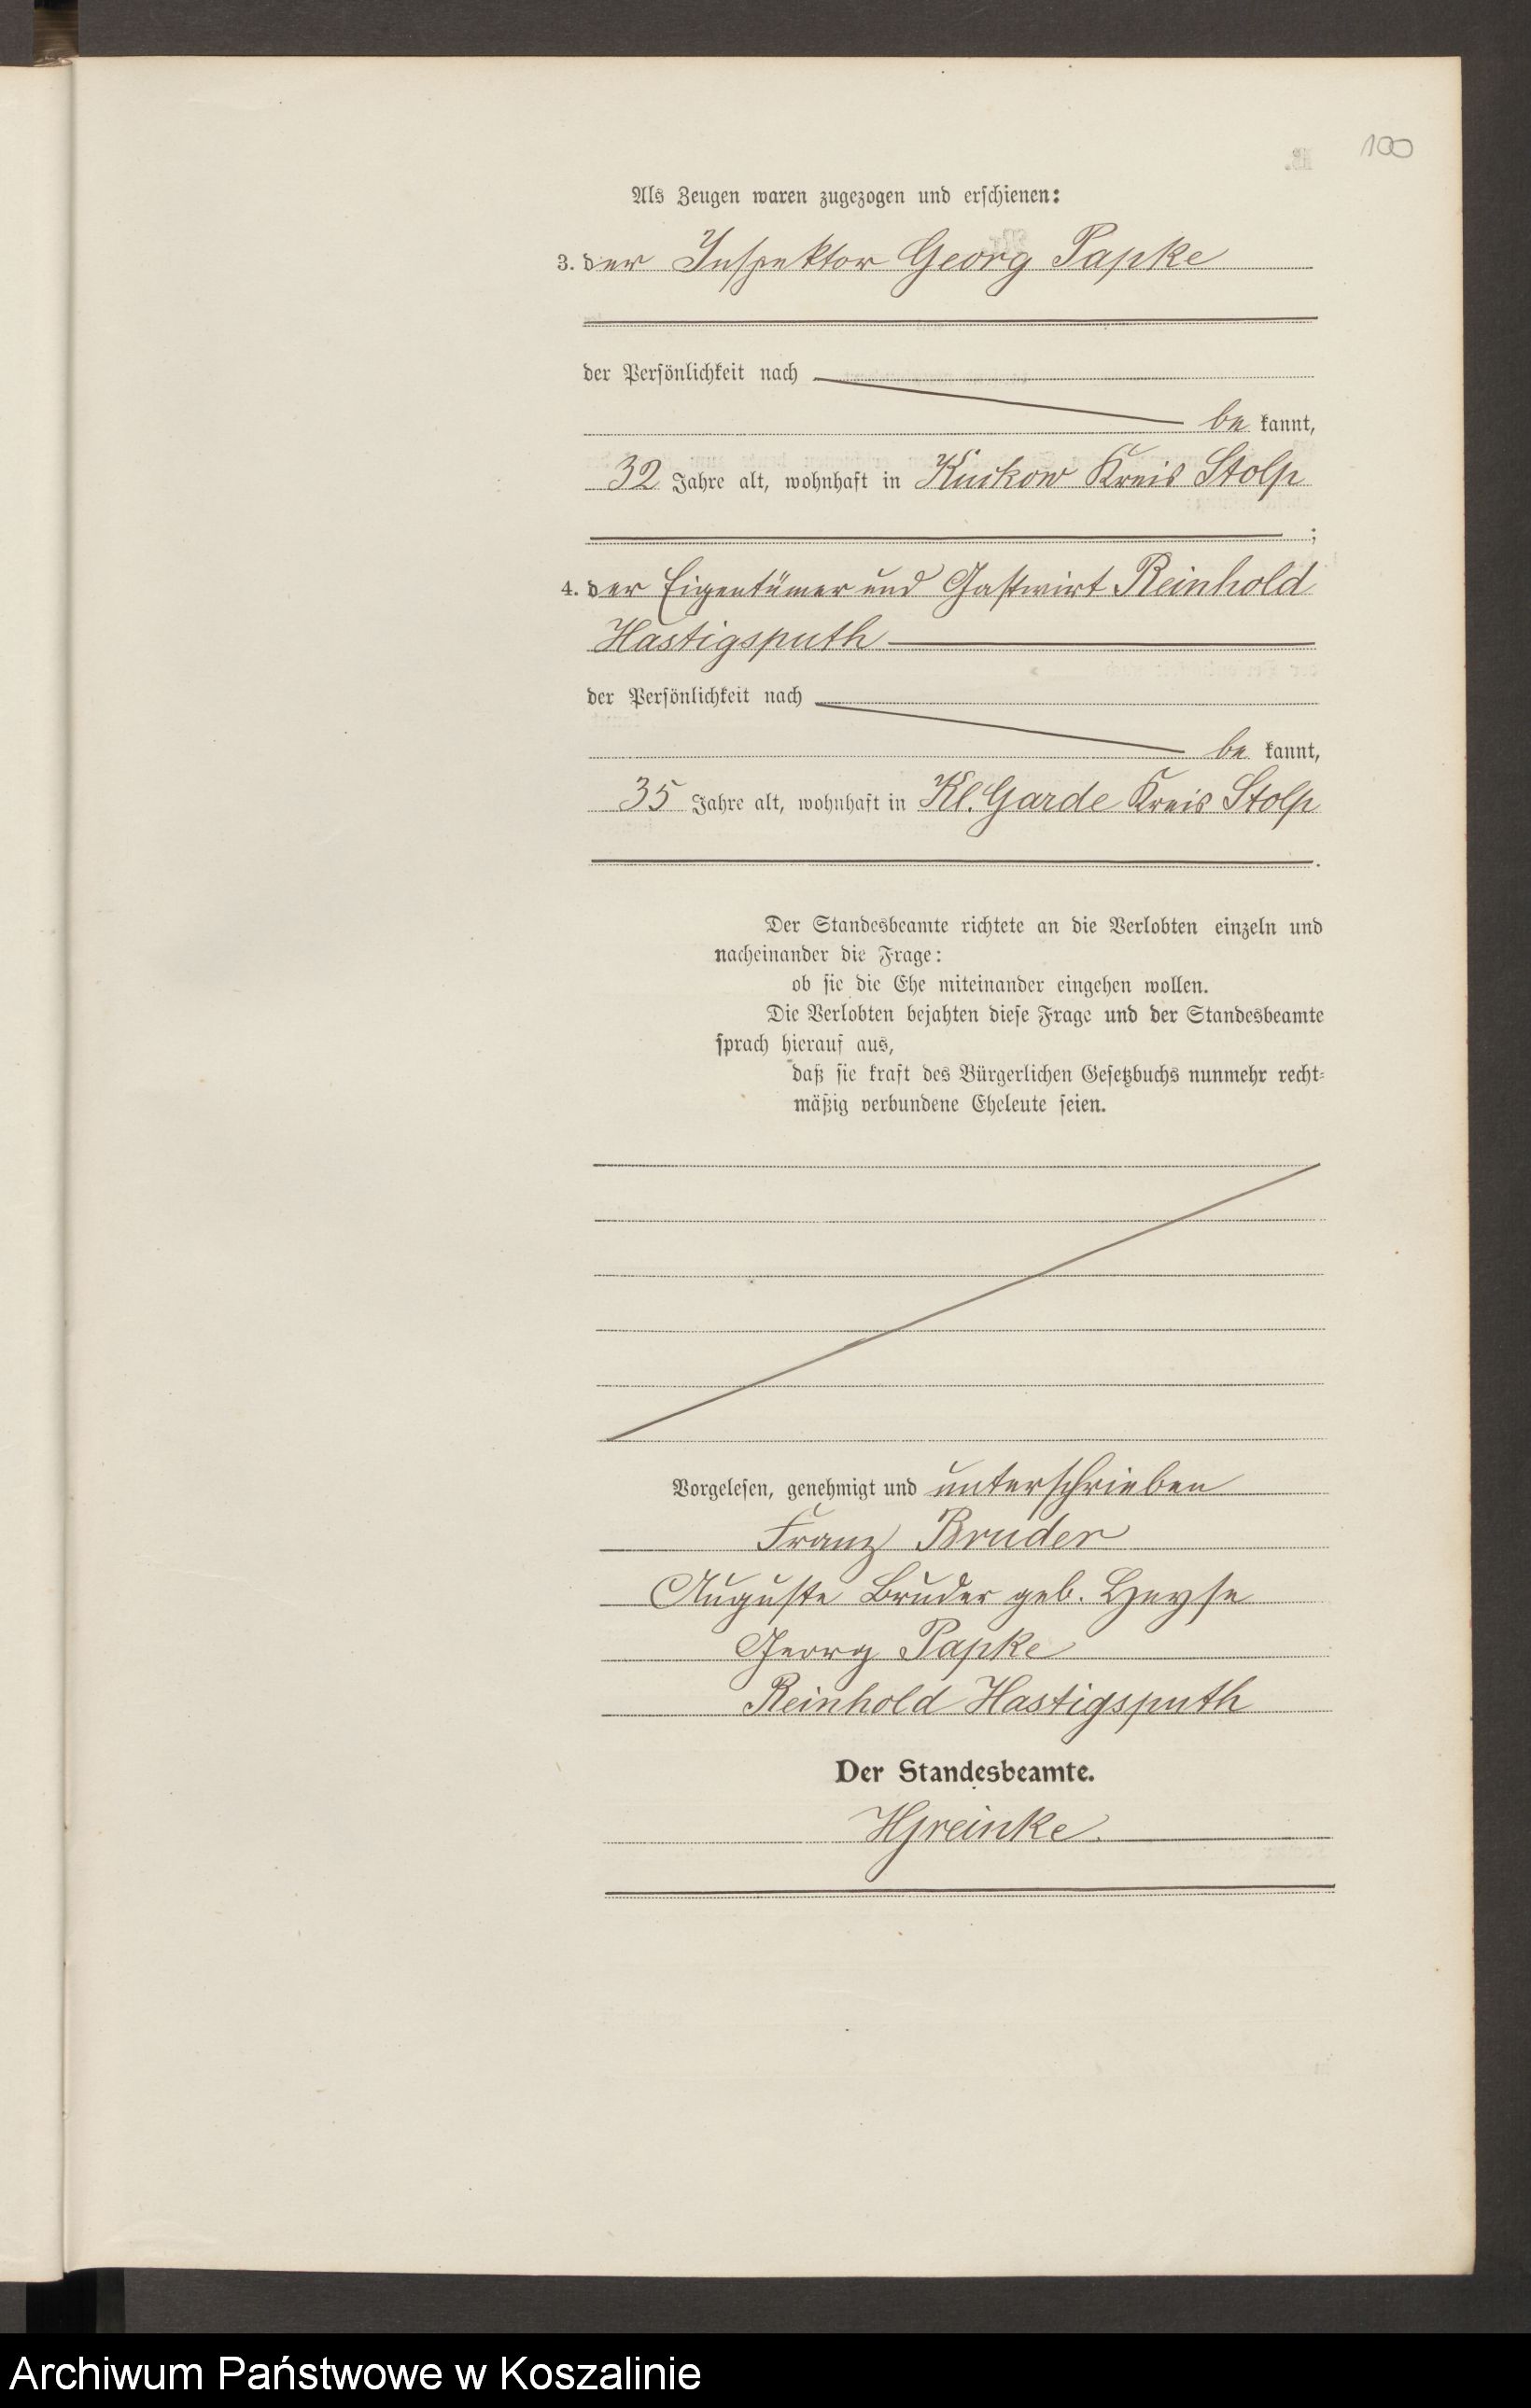 100
Als Zeugen waren zugezogen und erschienen:
3. der Inspektor Georg Papke
der Persönlichkeit nach
be kannt,
32 Jahre alt, wohnhaft in Kuckow Kreis Stolp
;
4. der Eigentümer und Gastwirt Reinhold
Hastigsputh
der Persönlichkeit nach
be kannt,
35 Jahre alt, wohnhaft in Kl. Garde Kreis Stolp
.
Der Standesbeamte richtete an die Verlobten einzeln und
nacheinander die Frage:
ob sie die Ehe miteinander eingehen wollen.
Die Verlobten bejahten diese Frage und der Standesbeamte
sprach hierauf aus,
daß sie kraft des Bürgerlichen Gesetzbuchs nunmehr recht-
mäßig verbundene Eheleute seien.
Vorgelesen, genehmigt und unterschrieben
Franz Bruder
Auguste Bruder geb. Heyse
Georg Papke
Reinhold Hastigsputh
Der Standesbeamte.
Archiwum Państwowe w Koszalinie